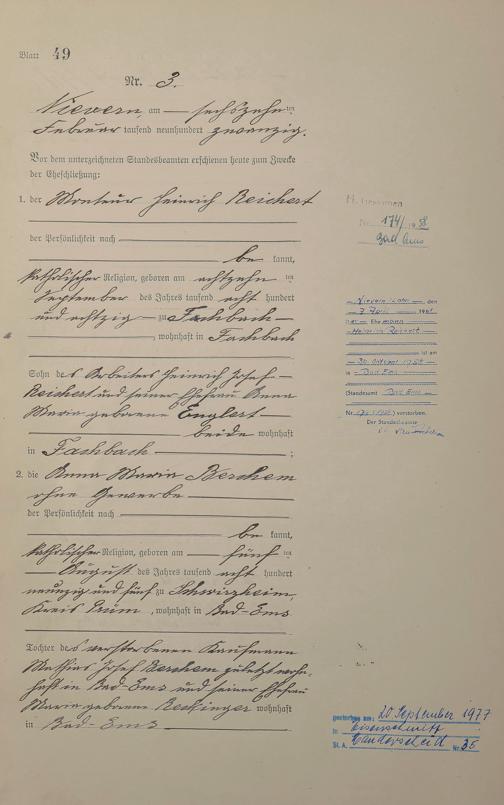 Blatt 49
Nr. 3.
Nievern, am — sechszehnten
Februar tausend neunhundert zwanzig.
Vor dem unterzeichneten Standesbeamten erschienen heute zum Zwecke
der Eheschließung:
1. der Monteur Heinrich Reichert
der Persönlichkeit nach
bekannt,
katholischer Religion, geboren am achtzehnten
September des Jahres tausend acht hundert
und achtzig — zu Fachbach —
, wohnhaft in Fachbach
Sohn des Arbeiters Heinrich Josef
Reichert und seiner Ehefrau Anna
Maria geborene Englert —
beide wohnhaft
in Fachbach ;
2. die Anna Maria Berschem
ohne Gewerbe
der Persönlichkeit nach
bekannt,
katholischer Religion, geboren am — fünften
August des Jahres tausend acht hundert
neunzig und fünf zu Schwirzheim,
Kreis Prüm, wohnhaft in Bad-Ems
Tochter des verstorbenen Kaufmann
Mathias Josef Berschem zuletzt wohn-
haft in Bad-Ems und seiner Ehefrau
Maria geborene wohnhaft
in Bad-Ems
Nr. 174/1958
Bad Ems
Nievern, den
7. 1961
Der Ehemann
Heinrich Reichert
ist am
30. 1958
in Bad Ems
(Standesamt Bad Ems
Nr. 174/1958) verstorben.
Der Standesbeamte
gestorben am: 20. September 1977
in Eisenschmitt
St. A. Manderscheid Nr. 35